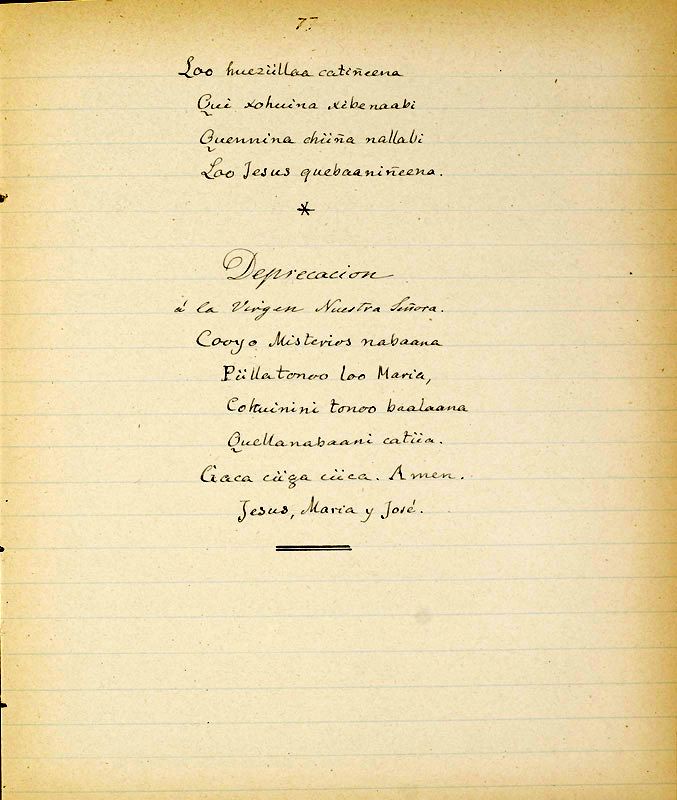 77
Lao huezüllaa catiñeena
Qui xohuina xibenaabi
Quennina chiiña nallabi
Lao Jesus quebaaniñeena.
Deprecacion
á la Virgen Nuestra Señora.
Cooyo Misterios nabaana
Püllatonoo loo Maria,
Cohuinini tonoo baalaana
Quellanabaani catiia.
Gaca ciiga ciica. Amen.
Jesus, Maria y José.